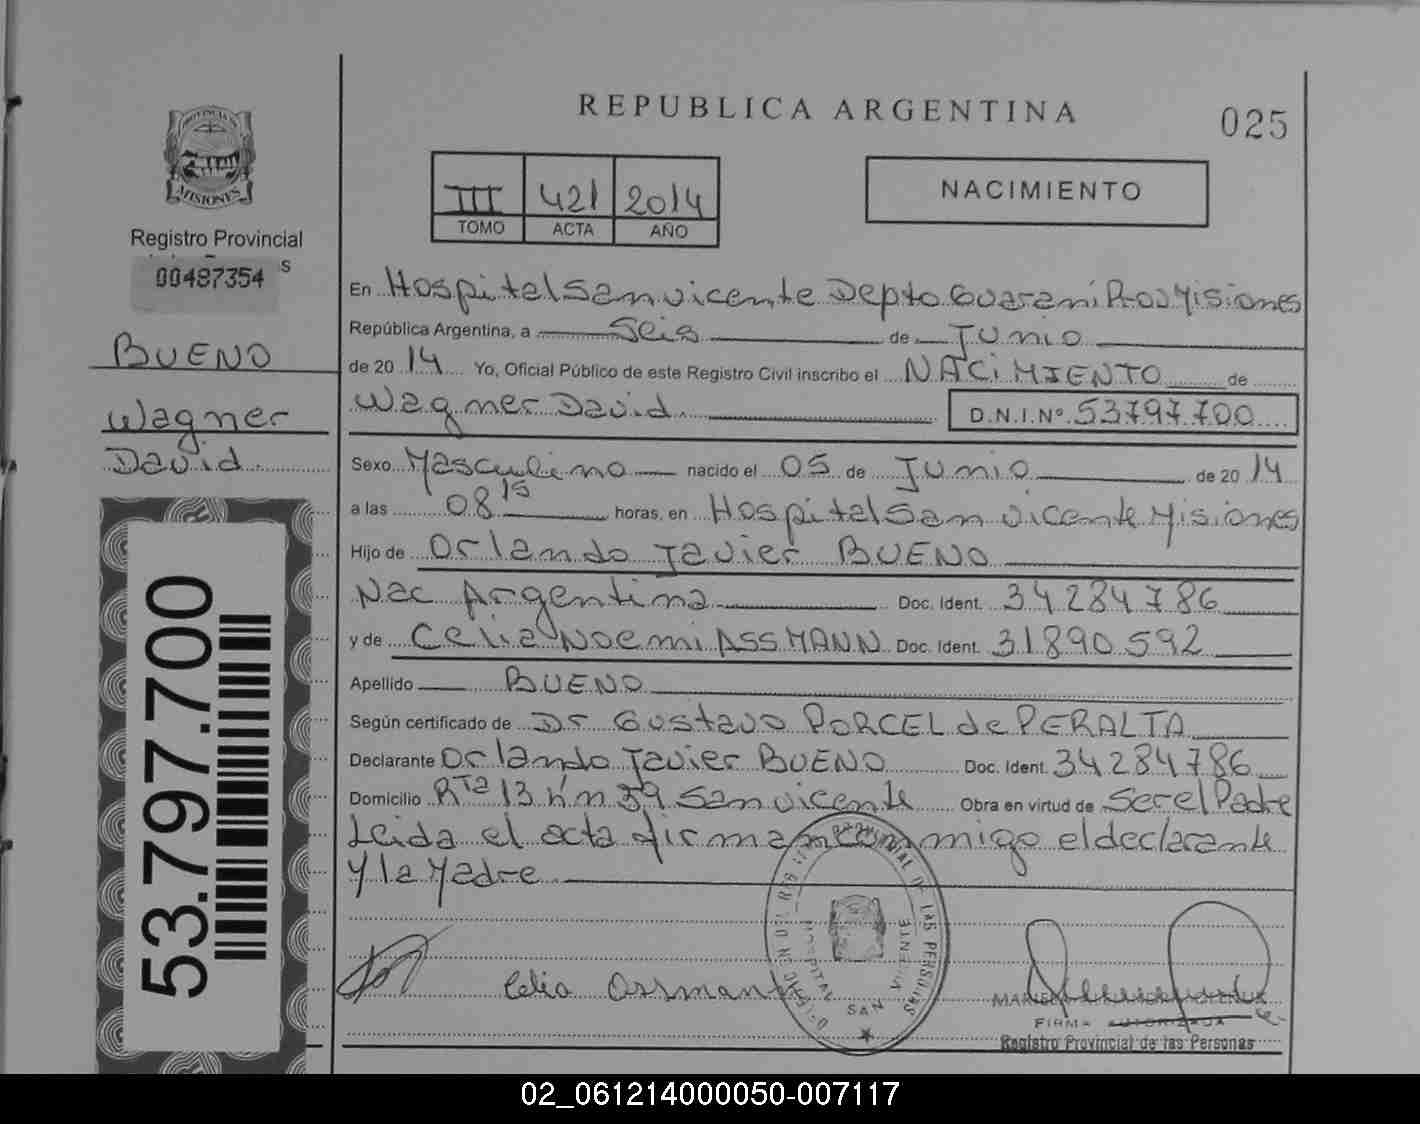 REPUBLICA ARGENTINA
025
III 421 2014
TOMO ACTA AÑO
NACIMIENTO
MISIONES
Registro Provincial
s
00487354
BUENO
Wagner
David
53.797.700
En Hospital San vicente Depto Guarani Prov Misiones
República Argentina, a Seis de Junio
de 2014 Yo, Oficial Público de este Registro Civil inscribo el NACIMIENTO de
Wagner David D.N.I.Nº 53797700
Sexo Masculino nacido el 05 de Junio de 2014
a las 08 15 horas, en Hospital San vicente Misiones
Hijo de Orlando Javier BUENO
Nac Argentina Doc. Ident. 34284786
y de Celia Noemi ASSMANN Doc. Ident. 31890592
Apellido BUENO
Según certificado de Dr Gustavo PORCEL de PERALTA
Declarante Orlando Javier BUENO Doc. Ident. 34284786
Domicilio Rta 13 Km 39 San vicente Obra en virtud de Ser el Padre
Leida el acta firman conmigo el declarante
y la Madre
Celia Assmann
HOSPITAL SAN VICENTE
FIRMA AUTORIZADA
Registro Provincial de las Personas
02_061214000050-007117